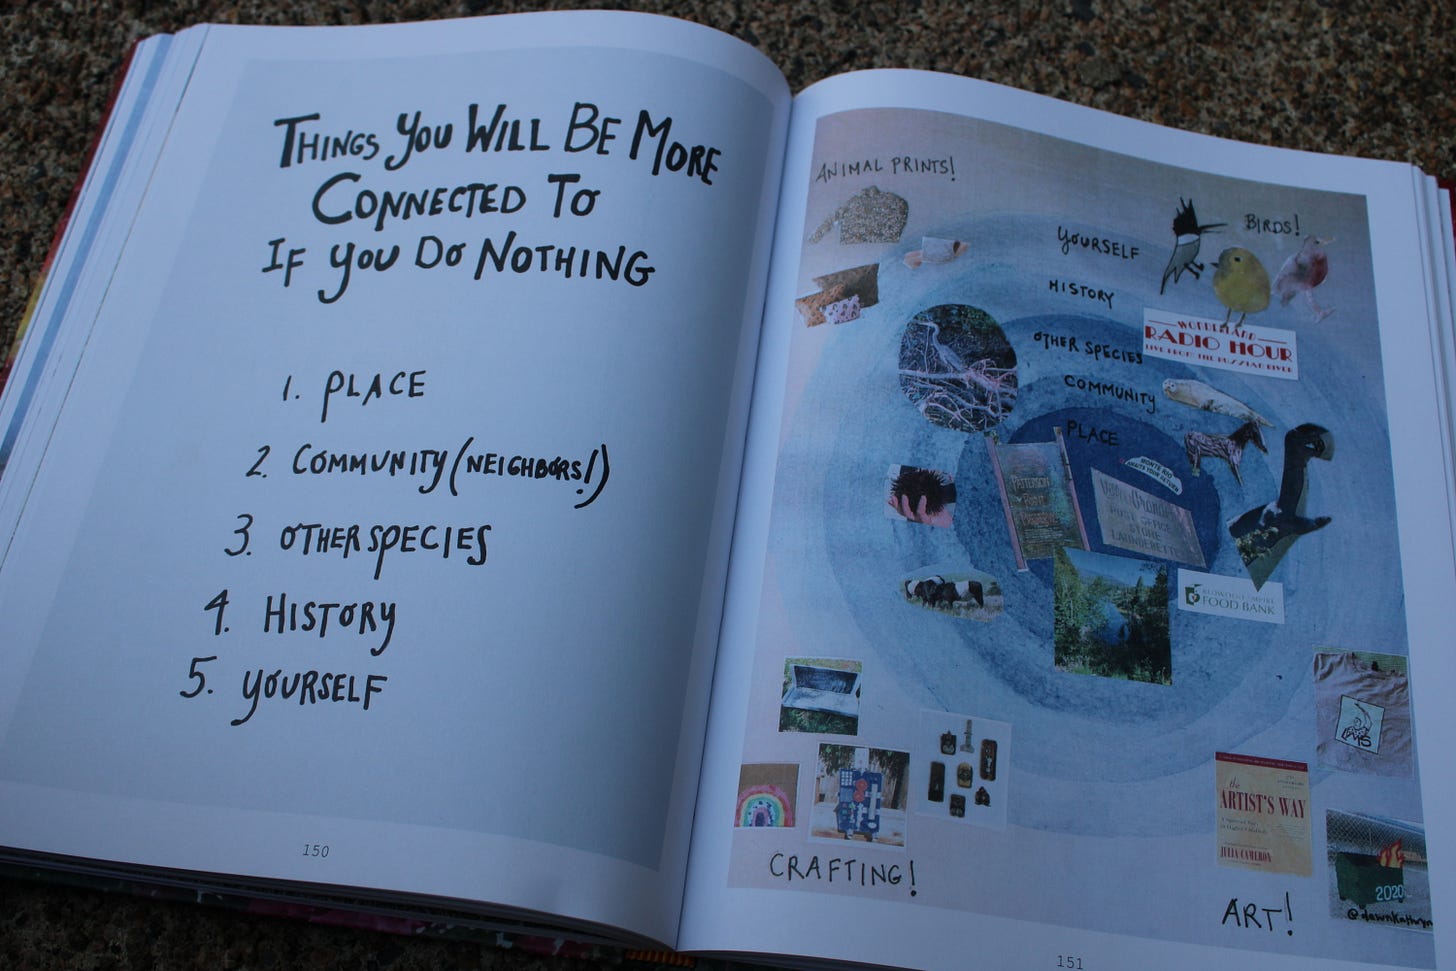 THINGS YOU WILL BE MORE
CONNECTED TO
IF YOU DO NOTHING
1. PLACE
2. COMMUNITY (NEIGHBORS!)
3. OTHER SPECIES
4. HISTORY
5. YOURSELF
150
ANIMAL PRINTS!
BIRDS!
YOURSELF
HISTORY
WONDERLAND
RADIO HOUR
LIVE FROM THE RUSSIAN RIVER
OTHER SPECIES
COMMUNITY
PLACE
MONTE RIO
AWAITS YOUR RETURN
PATTERSON
POINT
POST OFFICE
STORE
LAUNDERETTE
REDWOOD EMPIRE
FOOD BANK
the
ARTIST'S WAY
JULIA CAMERON
2020
@dawnkathryn
CRAFTING!
ART!
151